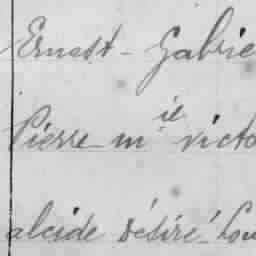 Ernest - Gabrie
Pierre m ie victo
alcide Désiré Lou